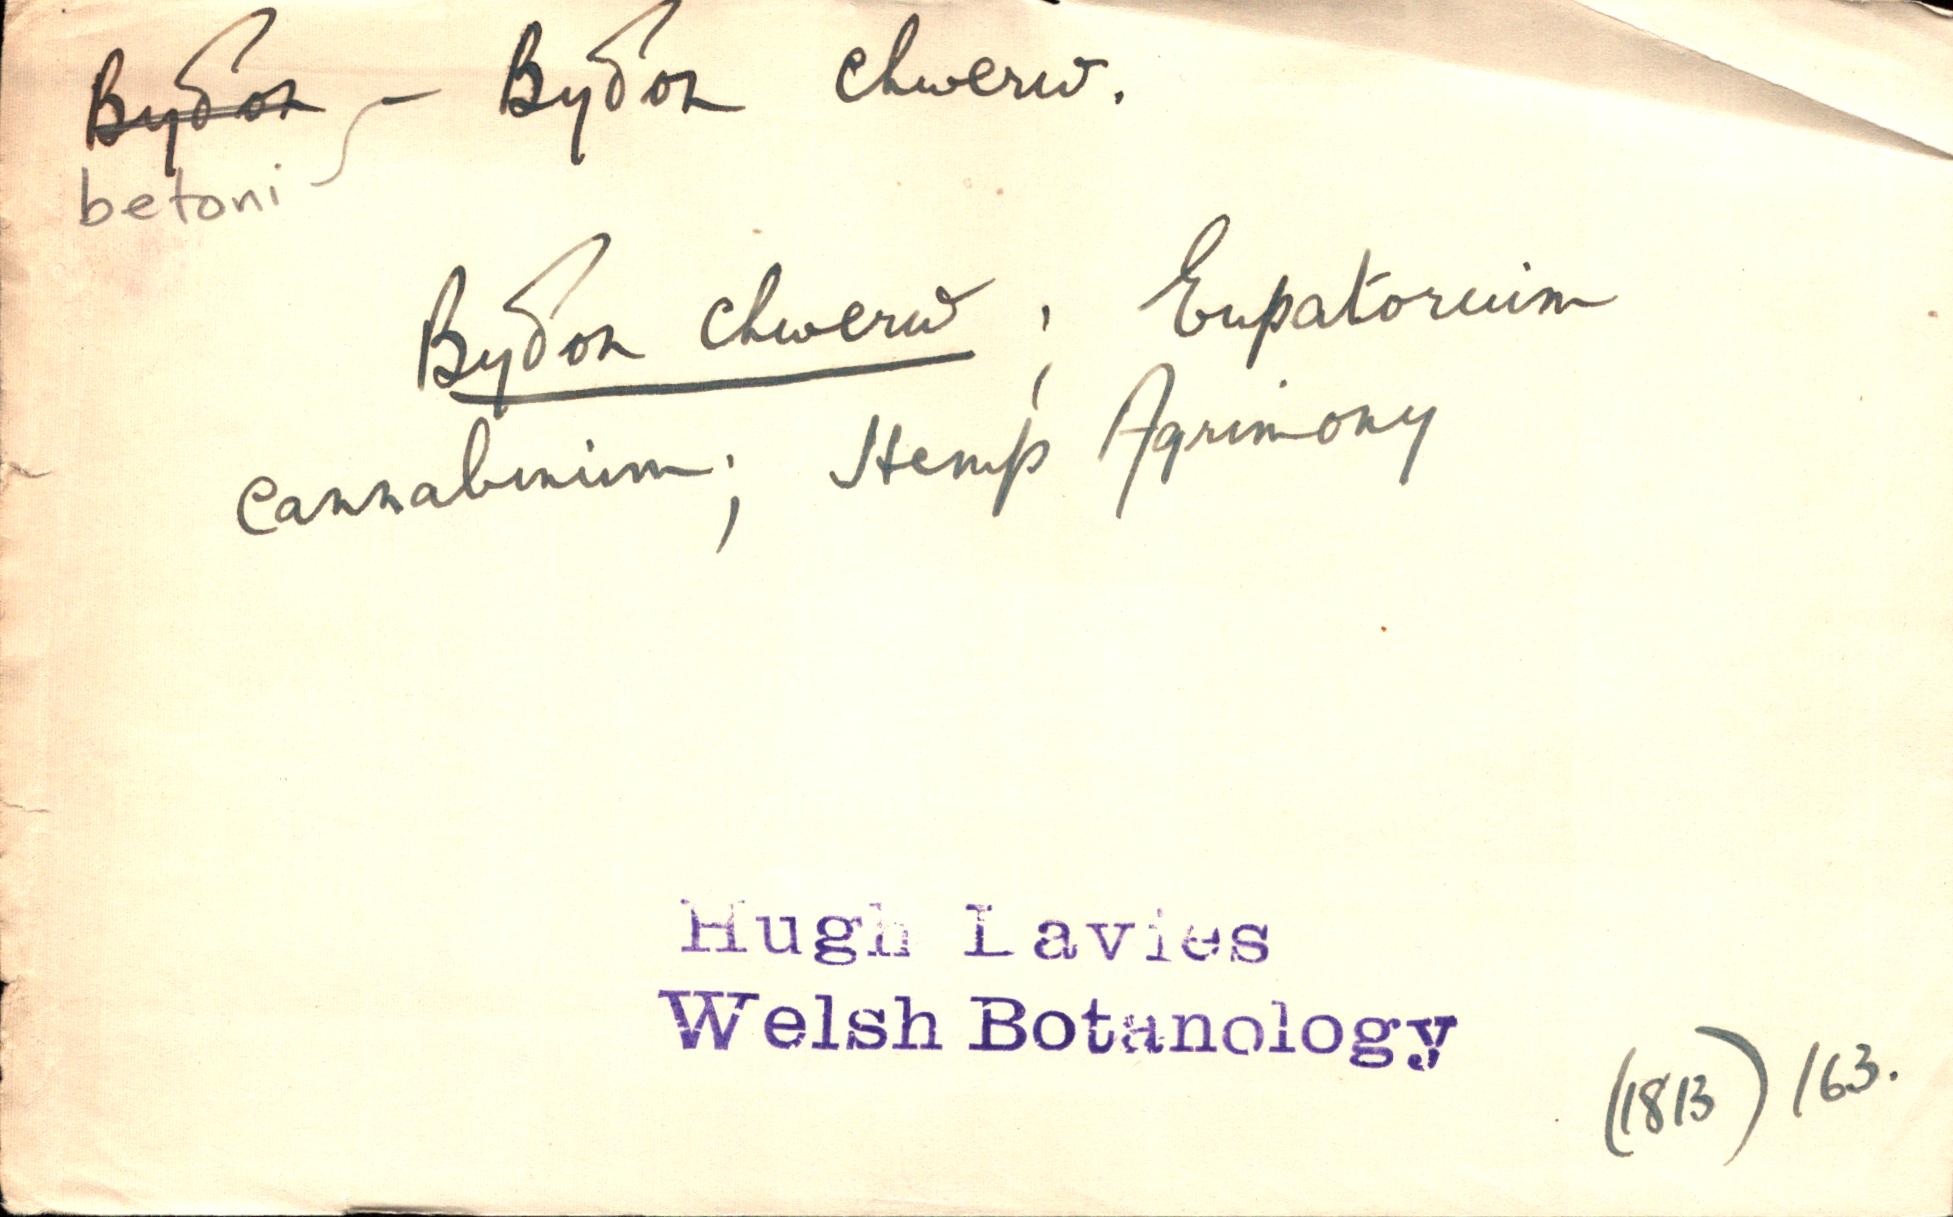 Byδon – Byδon chwerw.
betoni
Byδon chwerw ; Eupatorium
cannabinum; Hemp Agrimony
Hugh Davies
Welsh Botanology
(1813) 163.